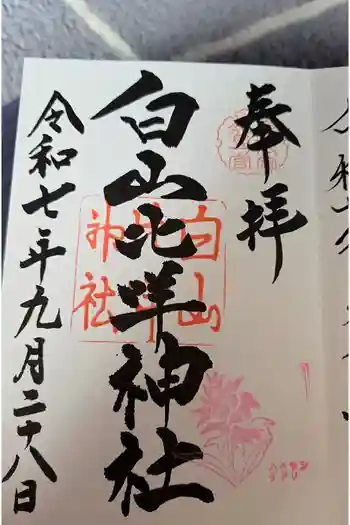 奉拝
白山比咩神社
白山
比咩
神社
令和七年九月二十八日